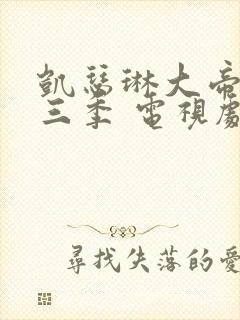 凱瑟琳大帝
三季 電視劇
尋找失落的愛